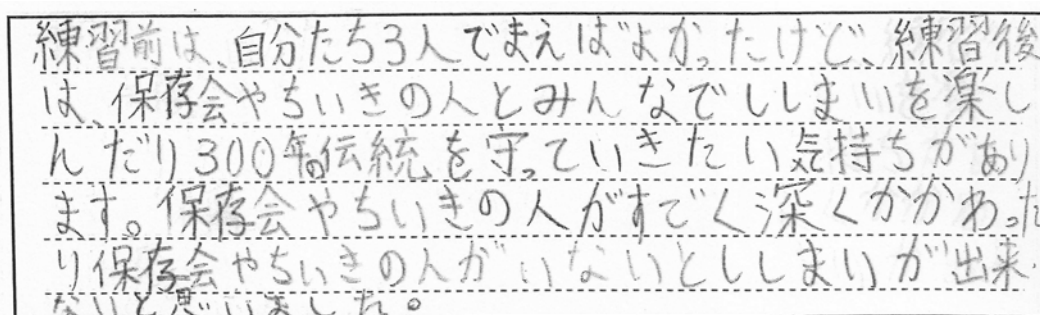 練習前は、自分たち3人でまえばよかったけど、練習後
は、保存会やちいきの人とみんなでししまいを楽し
んだり300年の伝統を守っていきたい気持ちがあり
ます。保存会やちいきの人がすごく深くかかわった
り保存会やちいきの人がいないとししまいが出来
ないと思いました。